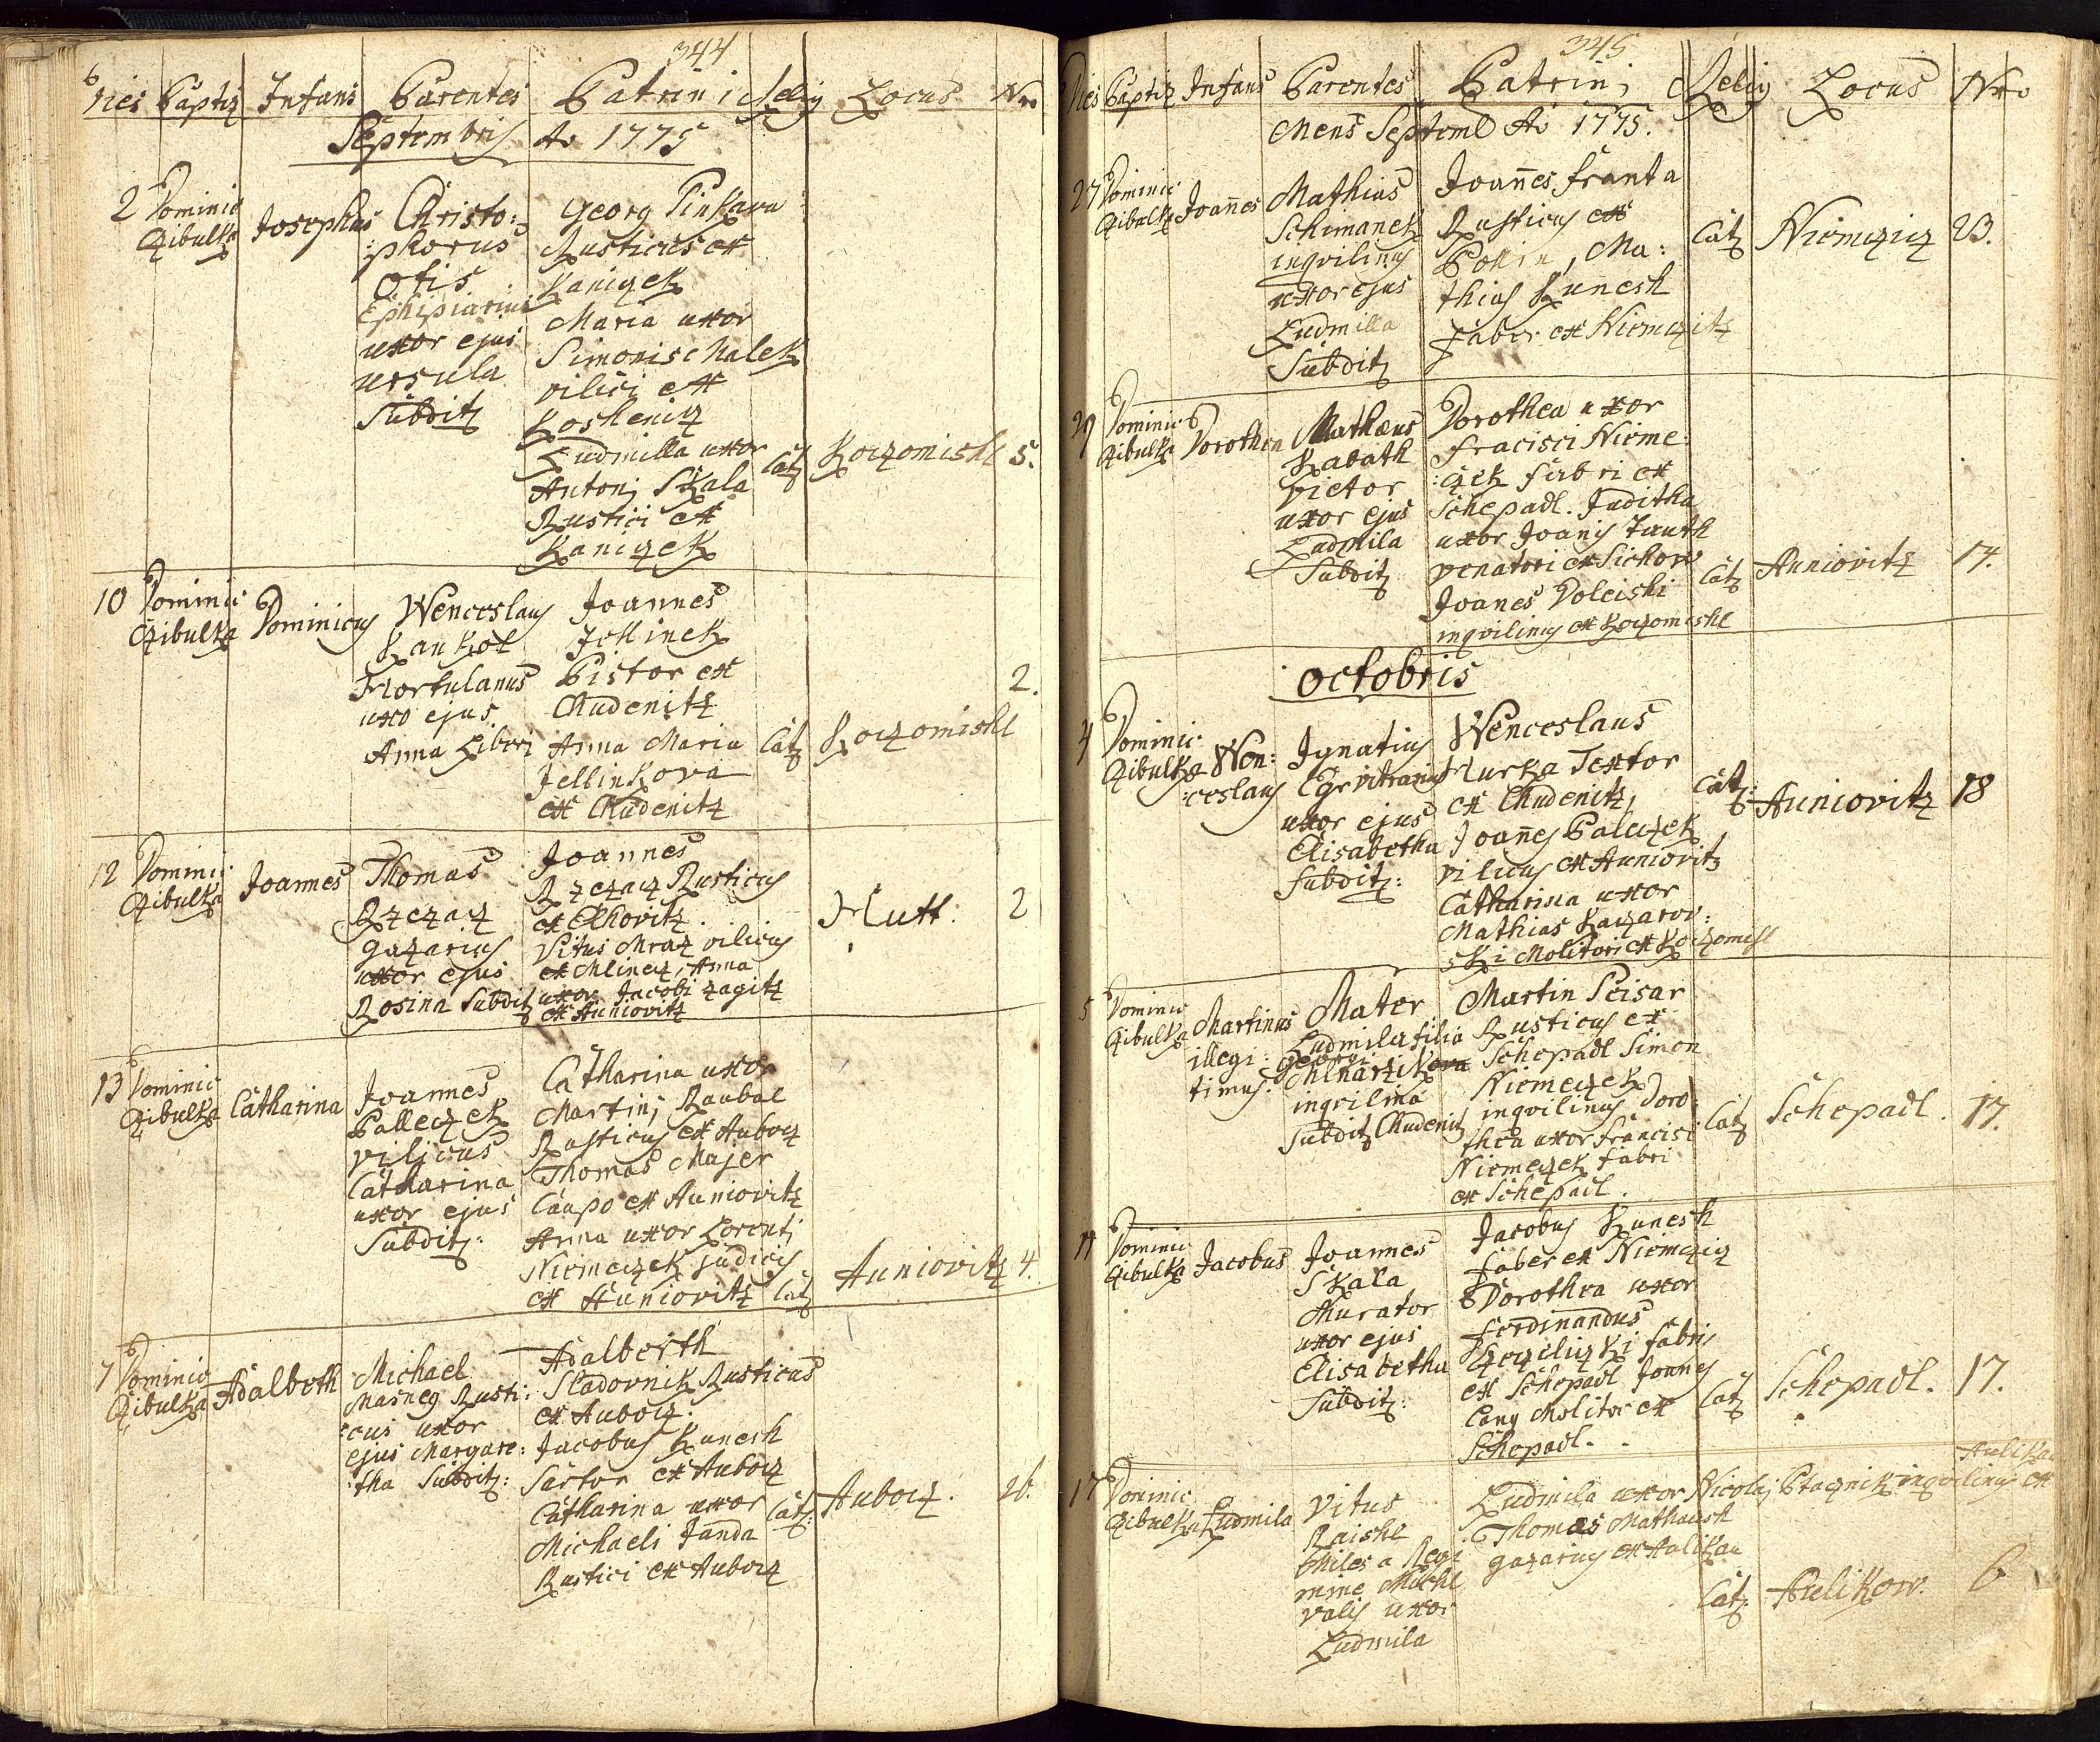 344
Dies Baptiz Infans Parentes Patrini Relig Locus Nro
Septembris Ao 1775
2 Dominic Czibulka
Josephus
Christo:
:phorus
Otis
Ephipiarius
uxor ejus
Ursula
Subditz
Georg Pinkava
Rusticus ex
Kaniczek
Maria uxor
Simonis Malek
vilici ex
Koshenicz
Ludmilla uxor
Antonj Skala
Rustici ex
Kaniczek
Catz Koczomishl 5.
10 Dominic Czibulka
Dominicus
Wenceslaus
Kankol
Hortulanus
uxo ejus
Anna Liberz
Joannes
Jellinek
Pistor ex
Chudenitz
Anna Maria
Jellinkova
ex Chudenitz
Catz Koczomishl
2.
12 Dominic Czibulka
Joannes
Thomas
Rzezacz
gazarius
uxor ejus
Rosina Subditz
Joannes
Rzezacz Rusticus
ex Chovitz
Vitus Mraz vilicus
ex Mlinecz, Anna
uxor Jacobi zagitz
ex Auniovitz
Hutt: 2
13 Dominic Czibulka
Catharina
Joannes
Palleczek
vilicus
Catharina
uxor ejus
Subditz:
Catharina uxor
Martinj Raubal
Rusticus ex Aubocz
Thomas Majer
Caupo ex Auniovitz
Anna uxor Lorentj
Niemeczek judicis
ex Auniovitz
Catz Auniovitz 4.
7 Dominic Czibulka
Adalberth
Michael
Masneg Rusti:
:cus uxor
ejus Margare:
:tha Subditz:
Adalberth
Sladovnik Rusticus
ex Aubocz.
Jacobus Kunesh
Sartor ex Aubocz
Catharina uxor
Michaeli Janda
Rustici ex Aubocz
Catz: Aubocz. 26.
345
Dies Baptiz Infans Parentes Patrini Relig Locus Nro
Mens Septeml Ao 1775.
27 Dominic Czibulka
Joannes
Mathias
Schimanek
inqvilinus
uxor ejus
Ludmilla
Subditz
Joannes Franta
Rusticus ex
Pokin, Ma:
thias Kunesh
Faber ex Niemczitz
Catz Niemczicz 23.
29 Dominic Czibulka
Dorothea
Mathaeus
Kabath
vietor
uxor ejus
Ludmila
Subditz
Dorothea uxor
Fracisci Nieme:
:czek fabri ex
Schepadl. Juditha
uxor Joanis Tauth
venatori ex Sichow
Joanes Doleishi
inqvilinus ex Koczomishl
Catz Auniovitz 14.
Octobris
4 Dominic Czibulka
Wen:
:ceslaus
Ignatius
Egr vitrarius
uxor ejus
Elisabetha
Subditz:
Wenceslaus
Hurka Textor
ex Chudenitz,
Joannes Paleczek
vilicus ex Auniovitz
Catharina uxor
Mathias Kaczarov:
ski Molitori ex Koczomishl
Catz: Auniovitz 18
5 Dominic Czibulka
Martinus
illegi:
timus:
Mater
Ludmila filia
Georgi
Mlnarzikova
inqvilina
Subditz Chudenitz
Martin Scisar
Rusticus ex
Schepadl Simon
Niemeczek
inqvilinus Doro:
thea uxor Francisi
Niemeczek fabri
ex Schepadl.
Catz Schepadl. 17.
14 Dominic Czibulka
Jacobus
Joannes
Skala
Murator
uxor ejus
Elisabetha
Subditz:
Jacobus Kunesh
faber ex Niemczicz
Dorothea uxor
Ferdinandus
fabris
ex Schepadl Joanes
Cany Molitor ex
Schepadl.
Catz Schepadl. 17.
17 Dominic Czibulka
Ludmila
Vitus
Raishl
Miles a Regi
mine Michl
valis uxor
Ludmila
Aulikau
Ludmila uxor Nicolaj Ptacznik inqvilinus ex
Thomas Mathaush
gazarius ex Aulikau
Catz: Aulikow. 6